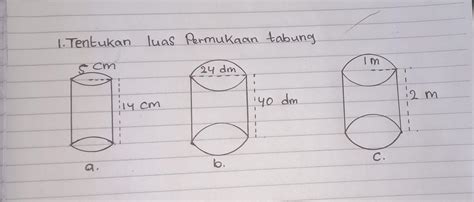 1. Tentukan luas Permukaan tabung
8 cm 24 dm 1 m
14 cm 40 dm 2 m
a. b. c.